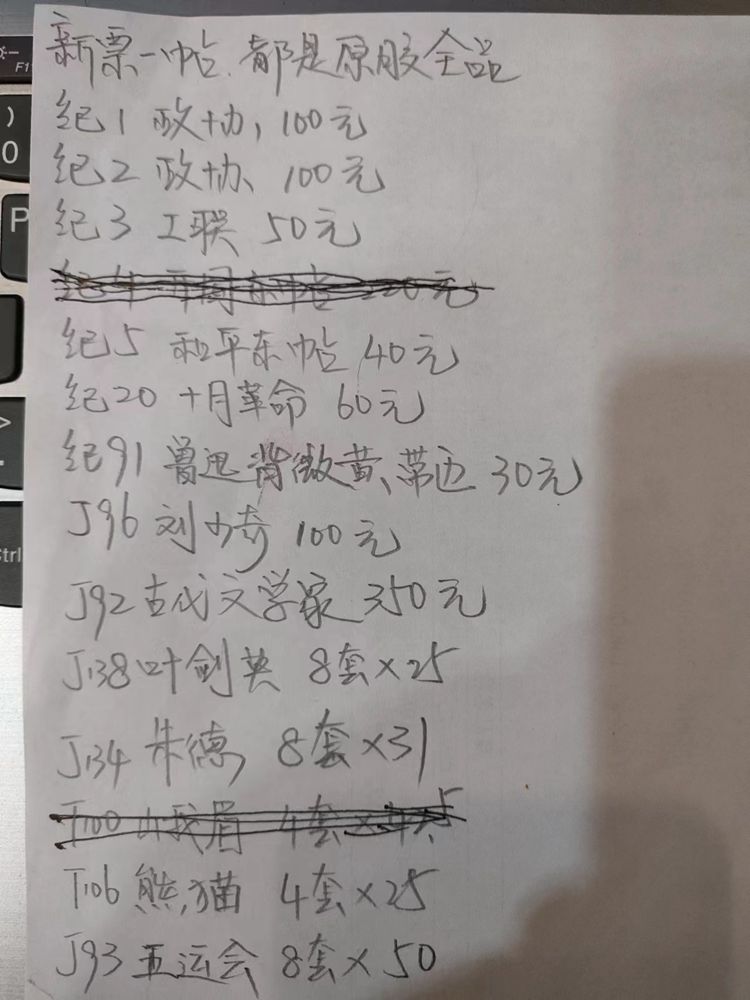 新票一帖.都是原胶全品
纪1 政协, 100元
纪2 政协、100元
纪3 工联 50元
纪5 和平东帖 40元
纪20 十月革命 60元
纪91 鲁迅背微黄、带边 30元
J96 刘少奇 100元
J92古代文学家 350元
J138叶剑英 8套×25
J134 朱德 8套×31
T100 峨眉 4套×
T106 熊猫 4套×25
J93 五运会 8套×50
F1
)
0
P
>
.
Ctrl